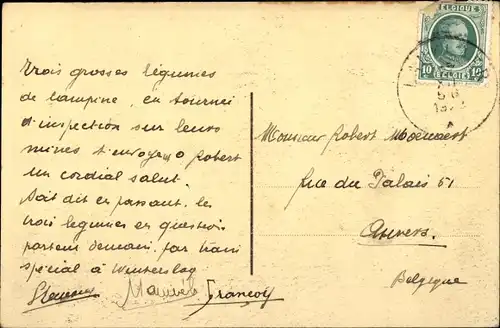 Trois grosses légumes
de Campine, en tournée
d'inspection sur leurs
mines t'envoyent o Robert
un cordial salut.
Soit dit en passant, les
trois legumes en question
partent demain par train
spécial à Winterslag
Maurice Francois
BELGIQUE
10 10
BELGIË
Monsieur Robert
Rue du Palais 51
Anvers.
Belgique